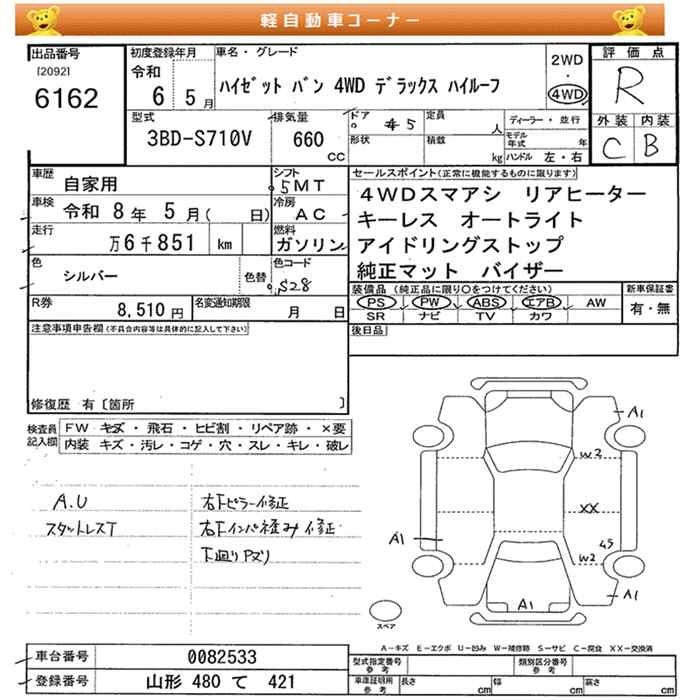 軽自動車コーナー
出品番号
[2092]
6162
初度登録年月
令和
6 5月
車名・グレード
ハイゼット バン 4WD デラックス ハイルーフ
2WD
・
4WD
評価点
R
外装 内装
C B
型式
3BD-S710V
排気量
660
CC
ドア
5
形状
定員
人
積載
kg
ディーラー・並行
モデル年式 年
ハンドル 左・右
車歴
自家用
シフト
5MT
車検
令和 8年 5月( 日)
冷房
AC
走行
万6千851 km
燃料
ガソリン
色
シルバー
色替
色コード
S28
R券
8,510円
名変通知期限
月 日
セールスポイント(正常に機能するものに限ります)
4WDスマアシ リアヒーター
キーレス オートライト
アイドリングストップ
純正マット バイザー
装備品 (純正品に限り○をつけてください)
PS PW ABS エアB AW
SR ナビ TV カワ
新車保証書
有・無
後日品
注意事項申告欄(不具合内容等は具体的に記入して下さい)
修復歴 有〔箇所 〕
検査員記入欄
FW キズ・飛石・ヒビ割・リペア跡・×要
内装 キズ・汚レ・コゲ・穴・スレ・キレ・破レ
A.U
スタットレスT
右下ピラー修正
右下インパ歪み修正
下廻りアズリ
A1
W2
XX
A1
45
W2
A1
A1
スペア
A-キズ E-エクボ U-凹み W-補修跡 S-サビ C-腐食 XX-交換済
車台番号
0082533
登録番号
山形 480 て 421
型式指定番号
参考
類別区分番号
参考
車庫証明用
参考
長さ cm
幅 cm
高さ cm